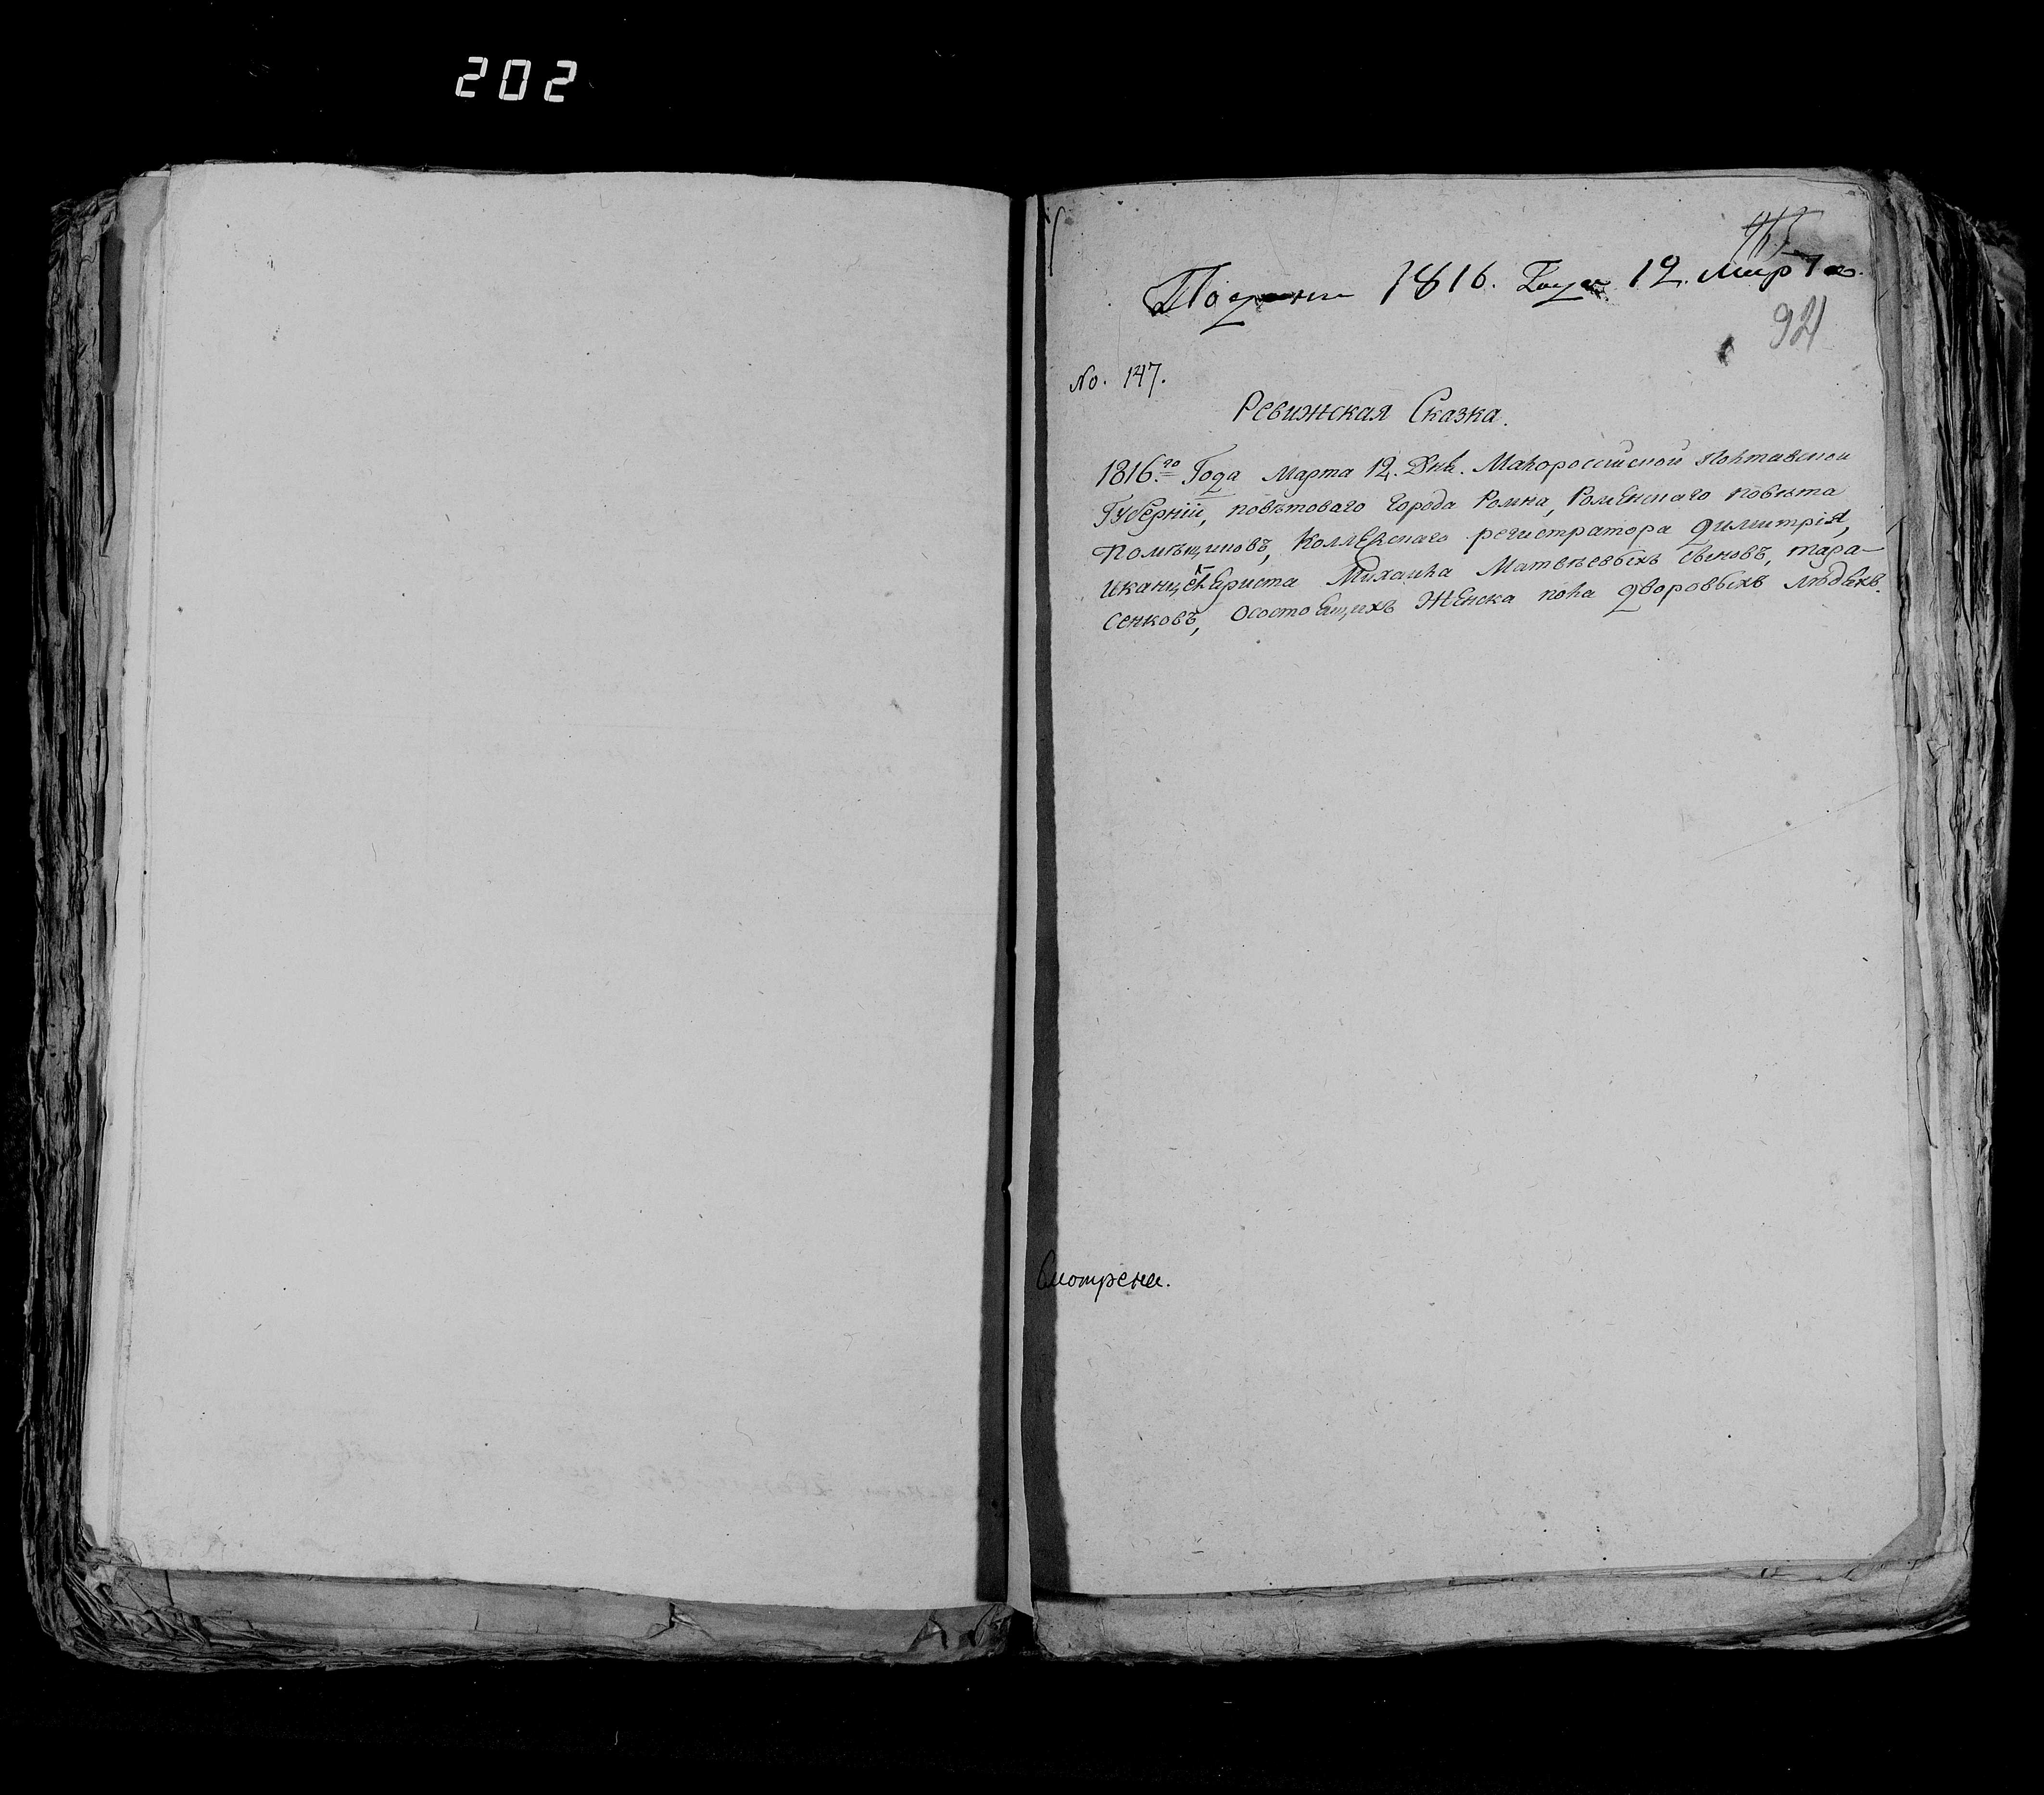 202
Подана 1816. Года 12. Марта.
92
No. 147.
Ревижская Сказка.
1816.го Года Марта 12. Дня. Малороссійской Полтавской
Губерніи, повѣтоваго города Ромна, Роменскаго повѣта
Помѣщиковъ, Коллежскаго регистратора Димитрія,
и канцеляриста Михаила Матвѣевыхъ сыновъ, Тара-
сенковъ, осостоящихъ Женска пола дворовыхъ людяхъ.
Смотрени.